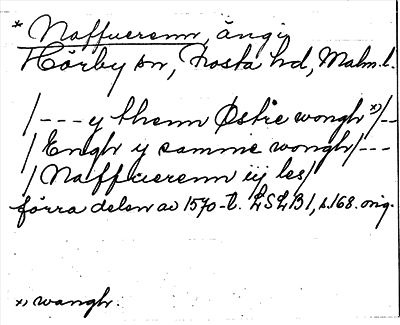 * Naffuerenn, äng i
Hörby sn, Frosta hd, Malm. l.
/--- y thenn Østre wongh x)/--
/ Engh y samme wongh/---
/ Naffuerenn iij les/
förra delen av 1570-t. LSLB 1, s. 168. orig.
x) wangh.